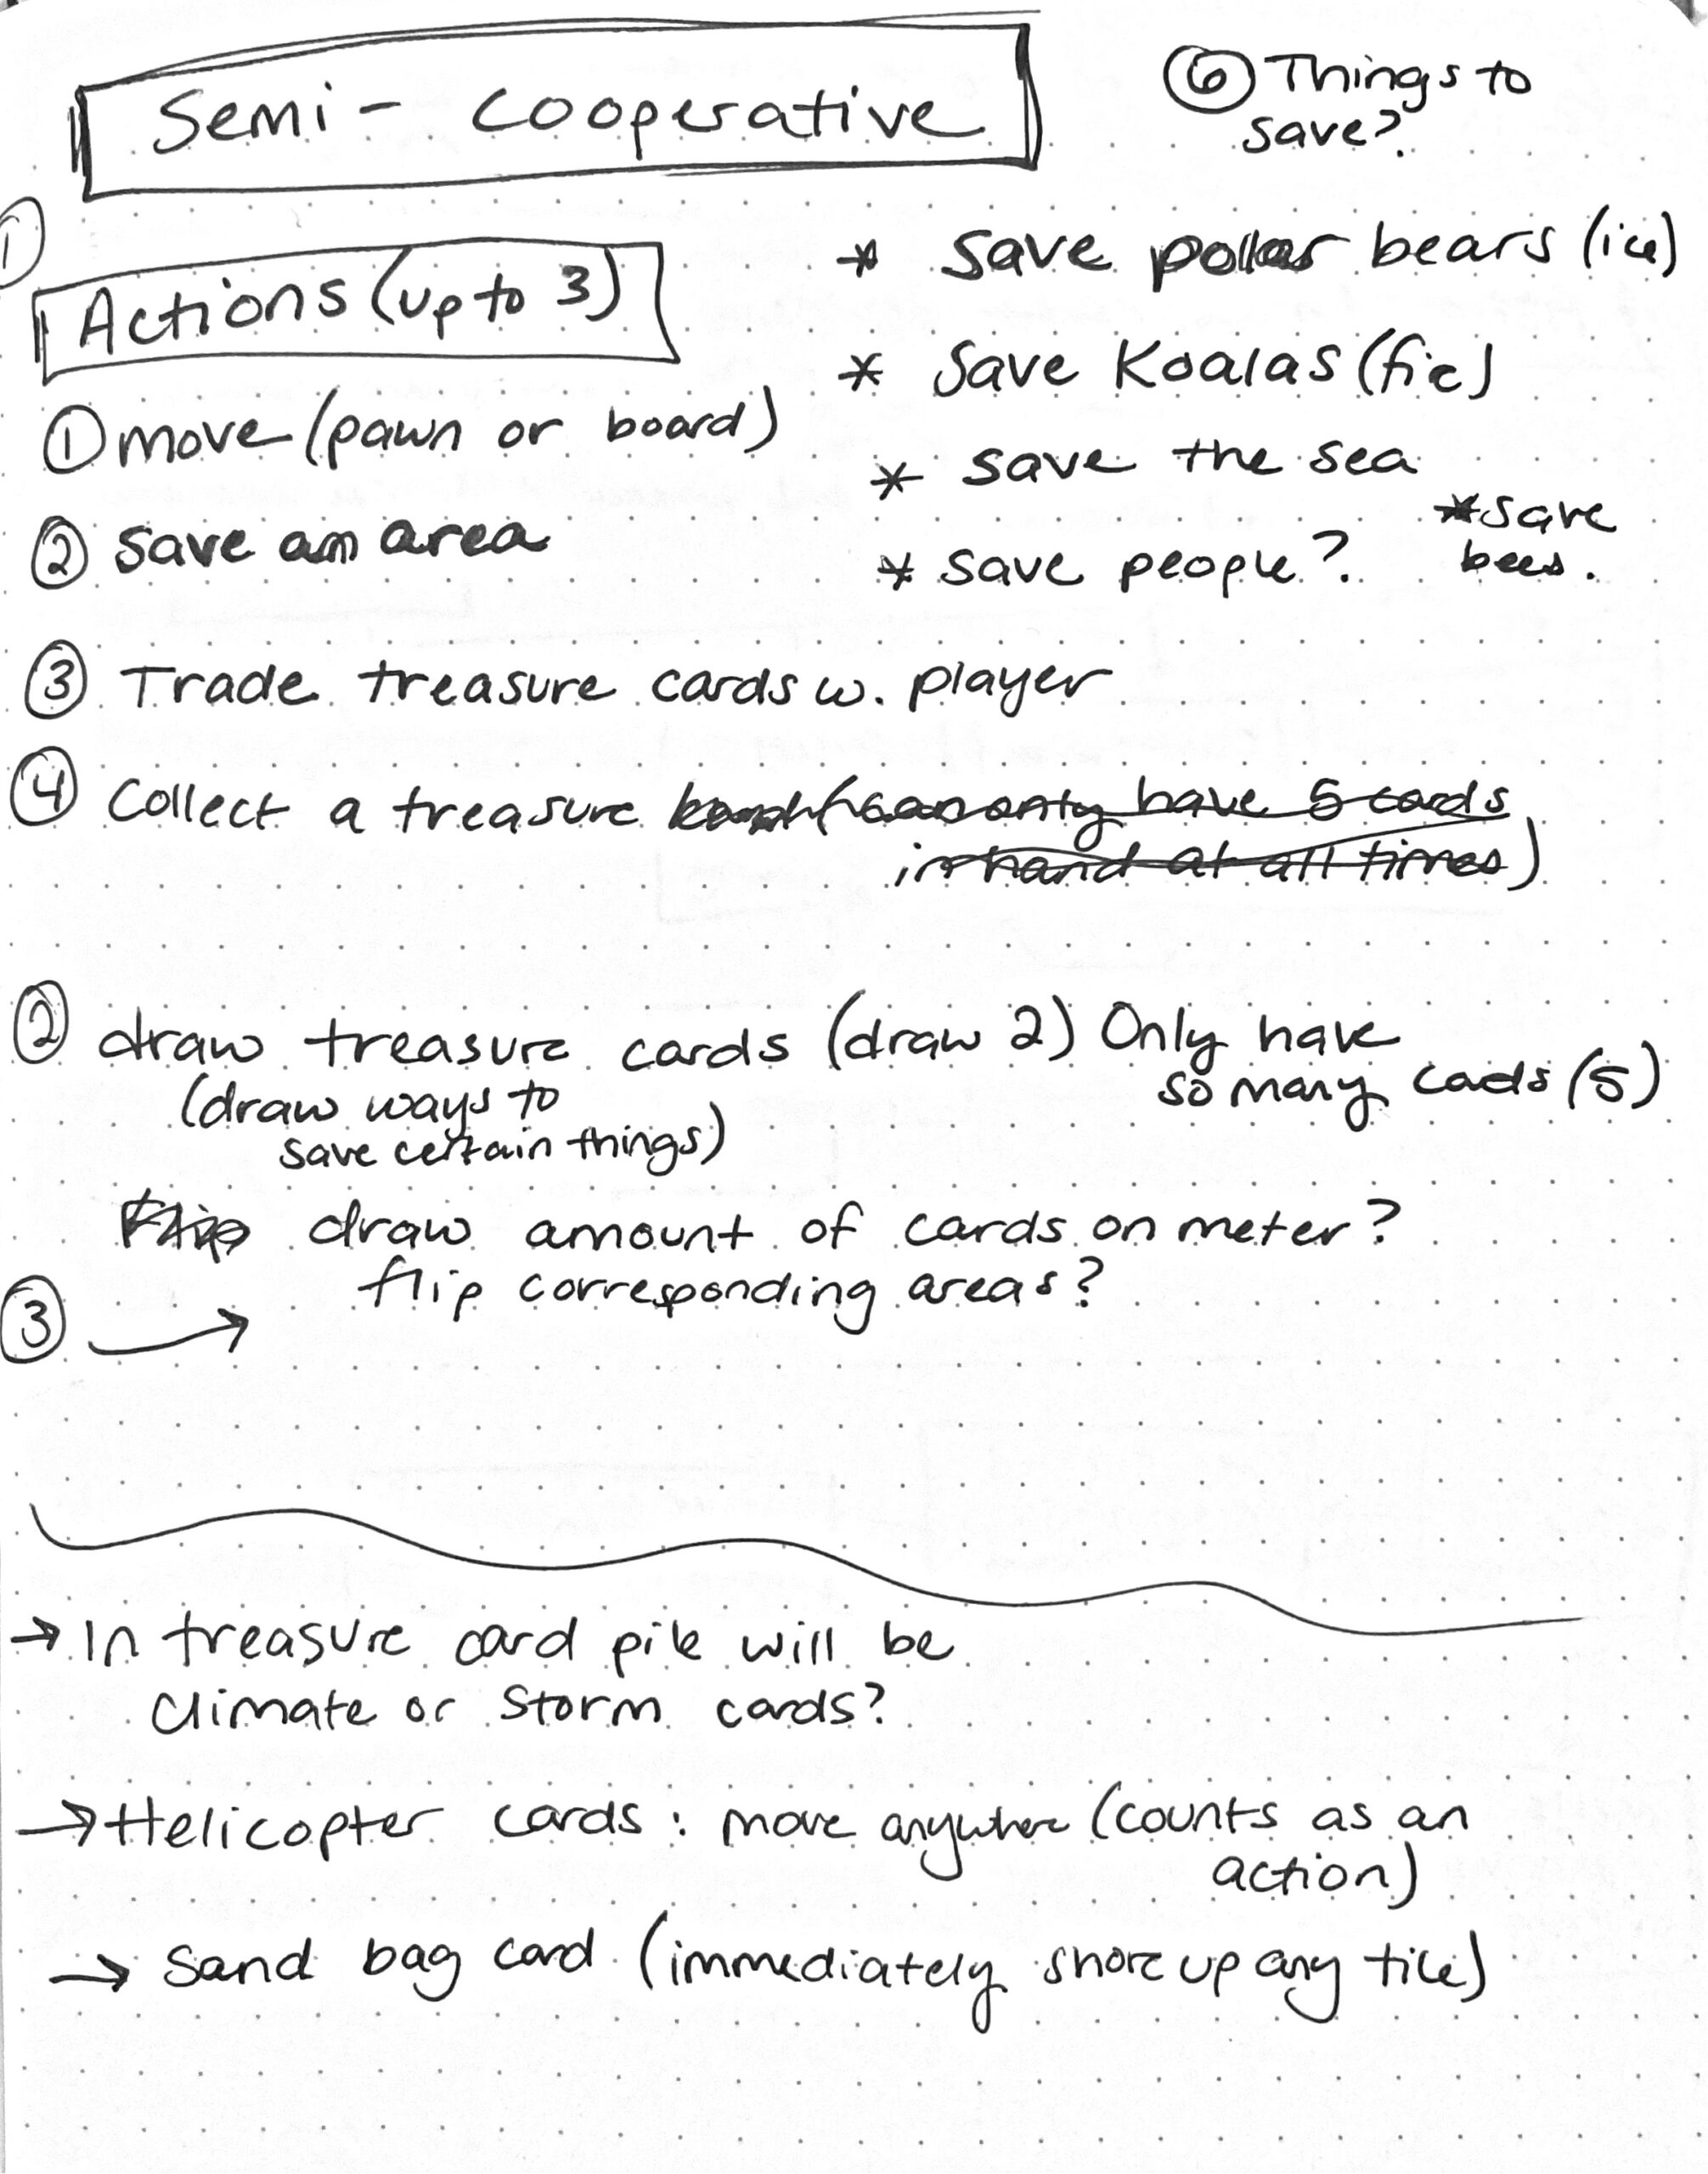 Semi - cooperative
6 Things to
save?
1
Actions (up to 3)
* save polar bears (ice)
* Save Koalas (fire)
* save the sea
* save people?
* save
bees.
1 move (pawn or board)
2 save an area
3 Trade treasure cards w. player
4 Collect a treasure (can only have 5 cards
in hand at all times)
2 draw treasure cards (draw 2) Only have
so many cards (5)
(draw ways to
save certain things)
Flip draw amount of cards on meter?
flip corresponding areas?
3 →
→ In treasure card pile will be
Climate or Storm cards?
→ Helicopter cards: move anywhere (counts as an
action)
→ Sand bag card (immediately shore up any tile)